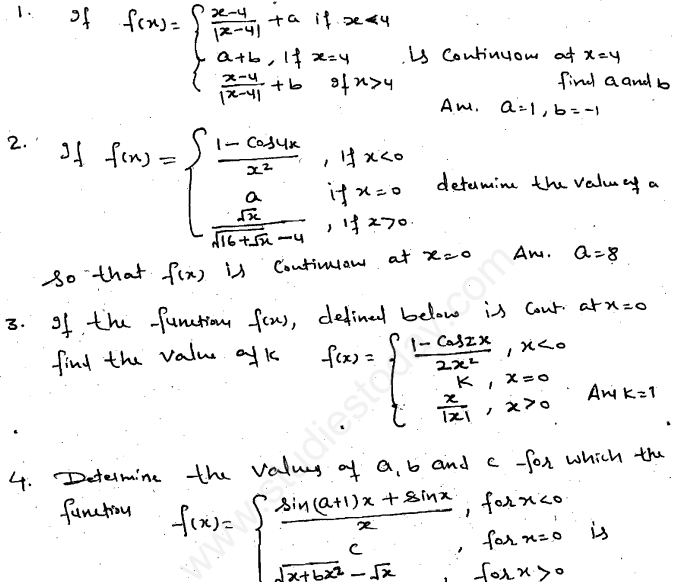 1. If f(x) = { x-4/|x-4| + a if x<4
a+b, If x=4 is Continuous at x=4
x-4/|x-4| + b If x>4 find a and b
Ans. a=1, b=-1
2. If f(x) = { 1-Cos4x/x² , If x<0
a if x=0 determine the value of a
√x/√16+√x-4 , if x>0
so that f(x) is Continuous at x=0 Ans. a=8
3. If the function f(x), defined below is Cont. at x=0
find the value of k f(x) = { 1-Cos2x/2x² , x<0
K , x=0
x/|x| , x>0 . Ans K=1
4. Determine the values of a, b and c for which the
function f(x) = { sin(a+1)x + sinx/x , for x<0
c , for x=0 is
√x+bx² - √x , for x>0
www.studiestoday.com